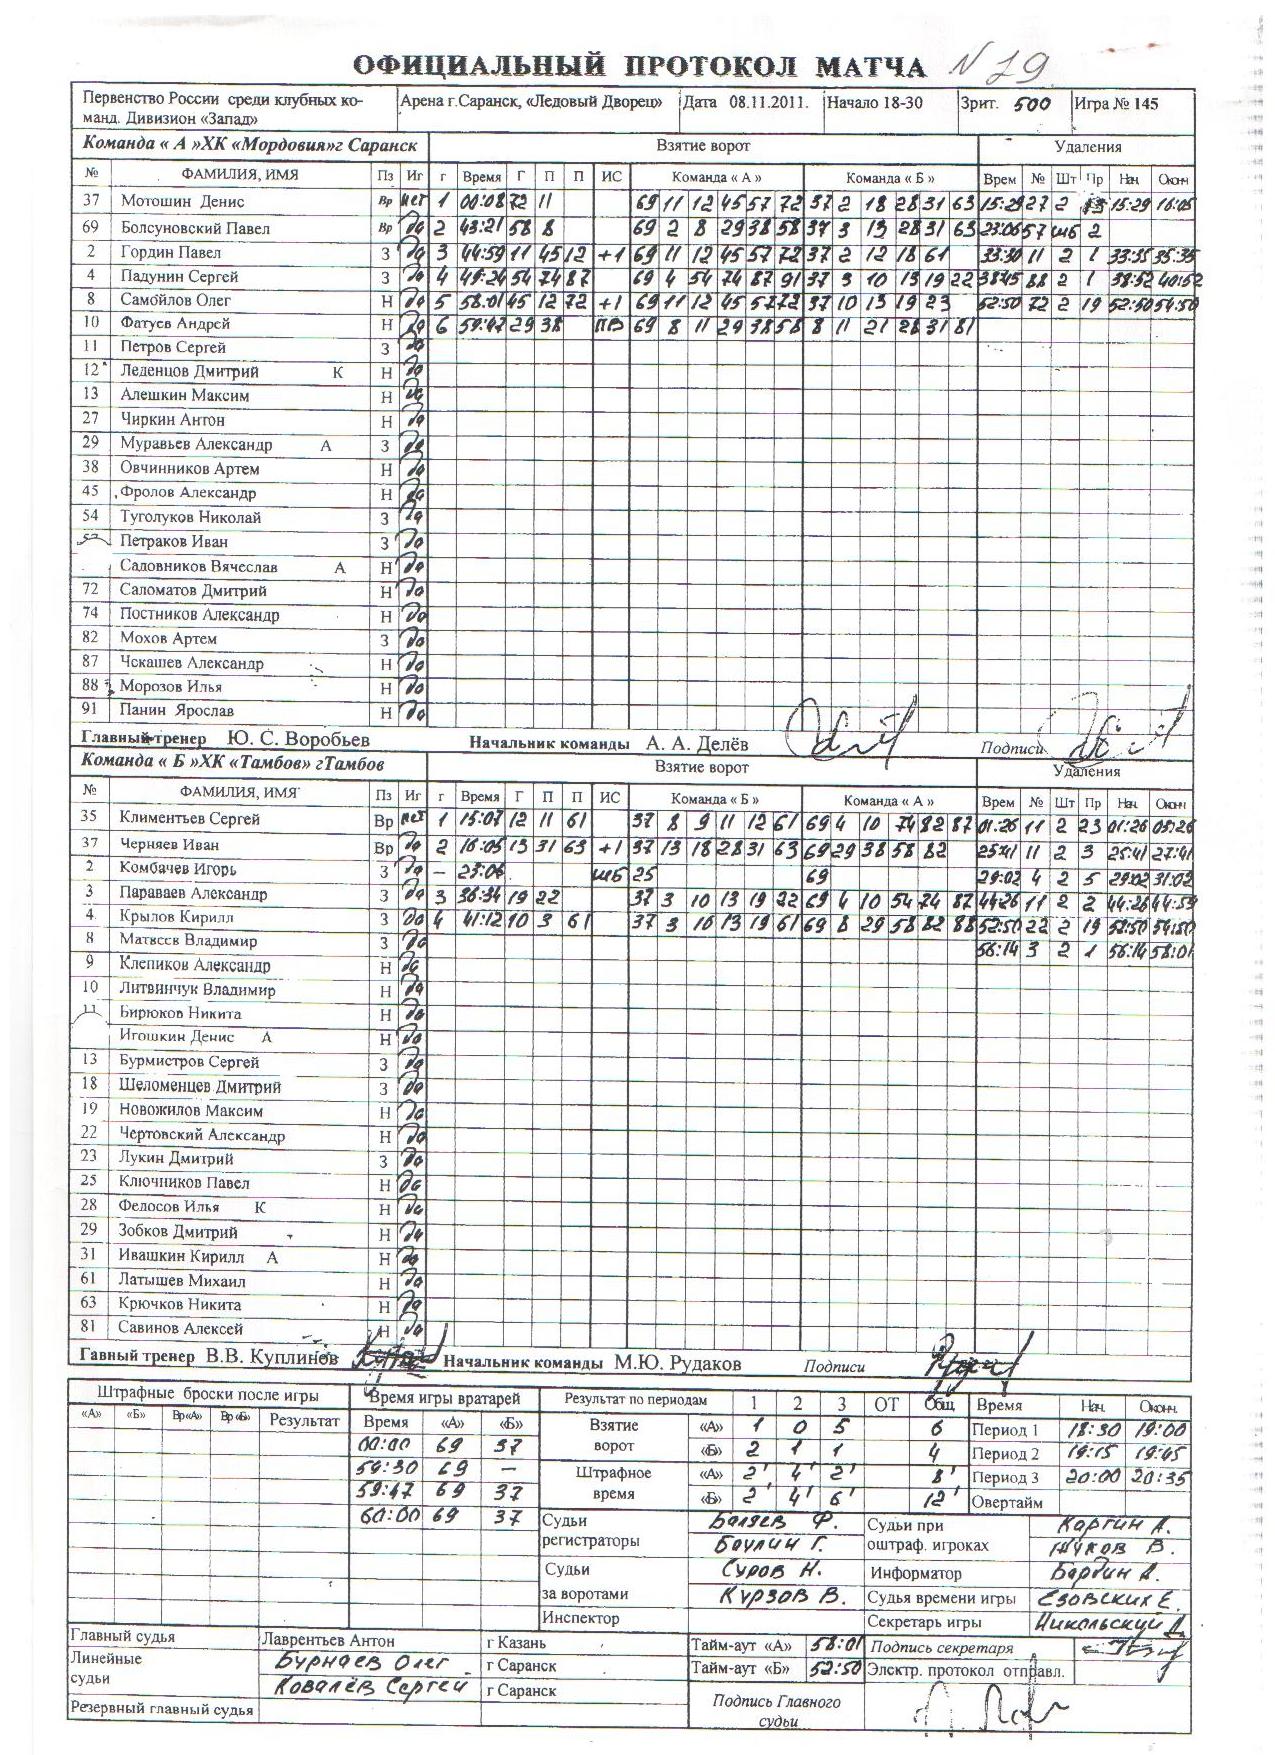 ОФИЦИАЛЬНЫЙ ПРОТОКОЛ МАТЧА N 19
Первенство России среди клубных ко-
манд. Дивизион «Запад»
Арена г.Саранск, «Ледовый Дворец» Дата 08.11.2011. Начало 18-30 Зрит. 500 Игра № 145
Команда « А »ХК «Мордовия»г Саранск Взятие ворот Удаления
№ ФАМИЛИЯ, ИМЯ Пз Иг г Время Г П П ИС Команда « А » Команда « Б » Врем № Шт Пр Нач. Оконч
37 Мотошин Денис Вр нет 1 00:08 72 11 69 11 12 45 57 72 37 2 18 28 31 63 15:29 27 2 15:29 16:05
69 Болсуновский Павел Вр да 2 43:21 58 8 69 2 8 29 38 58 37 3 13 28 31 63 23:06 57 шб 2
2 Гордин Павел З да 3 44:59 11 45 12 +1 69 11 12 45 57 72 37 2 12 18 61 33:30 11 2 1 33:35 35:35
4 Падунин Сергей З да 4 49:24 54 74 87 69 4 54 74 87 91 37 3 10 13 19 22 38:45 88 2 1 38:52 40:52
8 Самойлов Олег Н да 5 58:01 45 12 72 +1 69 11 12 45 57 72 37 10 13 19 23 52:50 72 2 19 52:50 54:50
10 Фатуев Андрей Н да 6 59:47 29 38 ПВ 69 8 11 29 38 58 8 11 21 28 31 81
11 Петров Сергей З да
12 Леденцов Дмитрий К Н да
13 Алешкин Максим Н да
27 Чиркин Антон Н да
29 Муравьев Александр А З да
38 Овчинников Артем Н да
45 Фролов Александр Н да
54 Туголуков Николай З да
Петраков Иван З да
Садовников Вячеслав А Н да
72 Саломатов Дмитрий Н да
74 Постников Александр Н да
82 Мохов Артем З да
87 Чекашев Александр Н да
88 Морозов Илья Н да
91 Панин Ярослав Н да
Главный тренер Ю. С. Воробьев Начальник команды А. А. Делёв Подписи
Команда « Б »ХК «Тамбов» гТамбов Взятие ворот Удаления
№ ФАМИЛИЯ, ИМЯ Пз Иг г Время Г П П ИС Команда « Б » Команда « А » Врем № Шт Пр Нач. Оконч
35 Климентьев Сергей Вр нет 1 15:07 12 11 61 37 8 9 11 12 61 69 4 10 74 82 87 01:26 11 2 23 01:26 03:26
37 Черняев Иван Вр да 2 16:05 13 31 63 +1 37 13 18 28 31 63 69 29 38 58 82 25:41 11 2 3 25:41 27:41
2 Комбачев Игорь З да – 23:06 шб 25 69 29:02 4 2 5 29:02 31:02
3 Параваев Александр З да 3 36:34 19 22 37 3 10 13 19 22 69 4 10 54 74 87 44:26 11 2 2 44:26 44:59
4 Крылов Кирилл З да 4 41:12 10 3 61 37 3 10 13 19 61 69 8 29 58 82 88 52:50 22 2 19 52:50 54:50
8 Матвеев Владимир З да 56:14 3 2 1 56:14 58:01
9 Клепиков Александр Н да
10 Литвинчук Владимир Н да
11 Бирюков Никита Н да
Игошкин Денис А Н да
13 Бурмистров Сергей З да
18 Шеломенцев Дмитрий З да
19 Новожилов Максим Н да
22 Чертовский Александр Н да
23 Лукин Дмитрий З да
25 Ключников Павел Н да
28 Федосов Илья К Н да
29 Зобков Дмитрий Н да
31 Ивашкин Кирилл А Н да
61 Латышев Михаил Н да
63 Крючков Никита Н да
81 Савинов Алексей Н да
Гавный тренер В.В. Куплинов Начальник команды М.Ю. Рудаков Подписи
Штрафные броски после игры Время игры вратарей Результат по периодам 1 2 3 ОТ Общ. Время Нач. Оконч.
«А» «Б» Вр«А» Вр«Б» Результат Время «А» «Б» Взятие ворот «А» 1 0 5 6 Период 1 18:30 19:00
00:00 69 37 «Б» 2 1 1 4 Период 2 19:15 19:45
59:30 69 – Штрафное время «А» 2' 4' 2' 8' Период 3 20:00 20:35
59:47 69 37 «Б» 2' 4' 6' 12' Овертайм
60:00 69 37 Судьи регистраторы Баляев Ф. Судьи при оштраф. игроках Каргин А.
Баулин Г. Жуков В.
Судьи за воротами Суров Н. Информатор Бардин А.
Курзов В. Судья времени игры Езовских Е.
Инспектор Секретарь игры Никольский Д.
Главный судья Лаврентьев Антон г Казань Тайм-аут «А» 58:01 Подпись секретаря
Линейные судьи Бурнаев Олег г Саранск Тайм-аут «Б» 52:50 Электр. протокол отправл.
Ковалёв Сергей г Саранск Подпись Главного судьи
Резервный главный судья